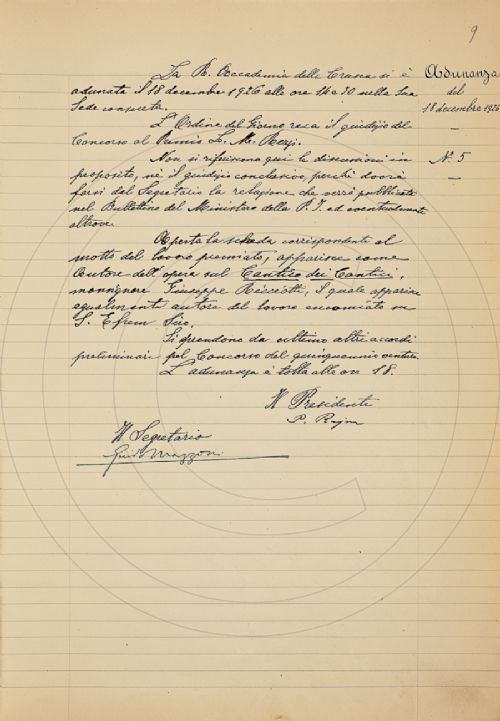 9
Adunanza
del
18 decembre 1926
N.° 5
La R. Accademia della Crusca si è
adunata il 18 decembre 1926 alle ore 16 e 30 nella sua
Sede consueta.
L'Ordine del Giorno reca il giudizio del
Concorso al Premio L. M. Rezzi.
Non si riferiscono qui le discussioni in
proposito, nè il giudizio conclusivo, perchè dovrà
farsi dal Segretario la relazione che verrà pubblicata
nel Bullettino del Ministero della P. I. ed eventualmente
altrove.
Aperta la scheda corrispondente al
motto del lavoro premiato, apparisce come
autore dell'opera sul Cantico dei Cantici,
monsignore Giuseppe Ricciotti, il quale apparisce
egualmente autore del lavoro encomiato su
S. Efrem Siro.
Si prendono da ultimo altri accordi
preliminari pel Concorso del quinquennio venturo.
L'adunanza è tolta alle ore 18.
Il Presidente
P. Rajna
Il Segretario
Guido Mazzoni